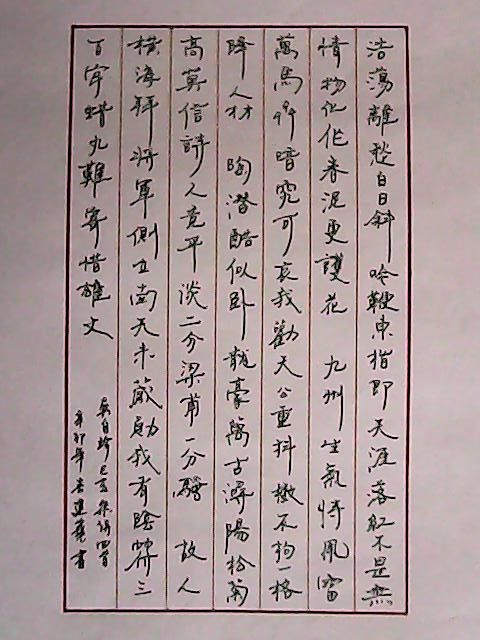 浩蕩離愁白日斜 吟鞭東指即天涯落紅不是無
情物化作春泥更護花 九州生氣恃風雷
萬馬齊喑究可哀我勸天公重抖擻不拘一格
降人材 陶潛酷似臥龍豪萬古潯陽松菊
高莫信詩人竟平淡二分梁甫一分騷 故人
橫海拜將軍側立南天未蕆勛我有陰符三
百字蠟丸難寄惜雄文
龔自珍己亥雜詩四首
辛卯年 書